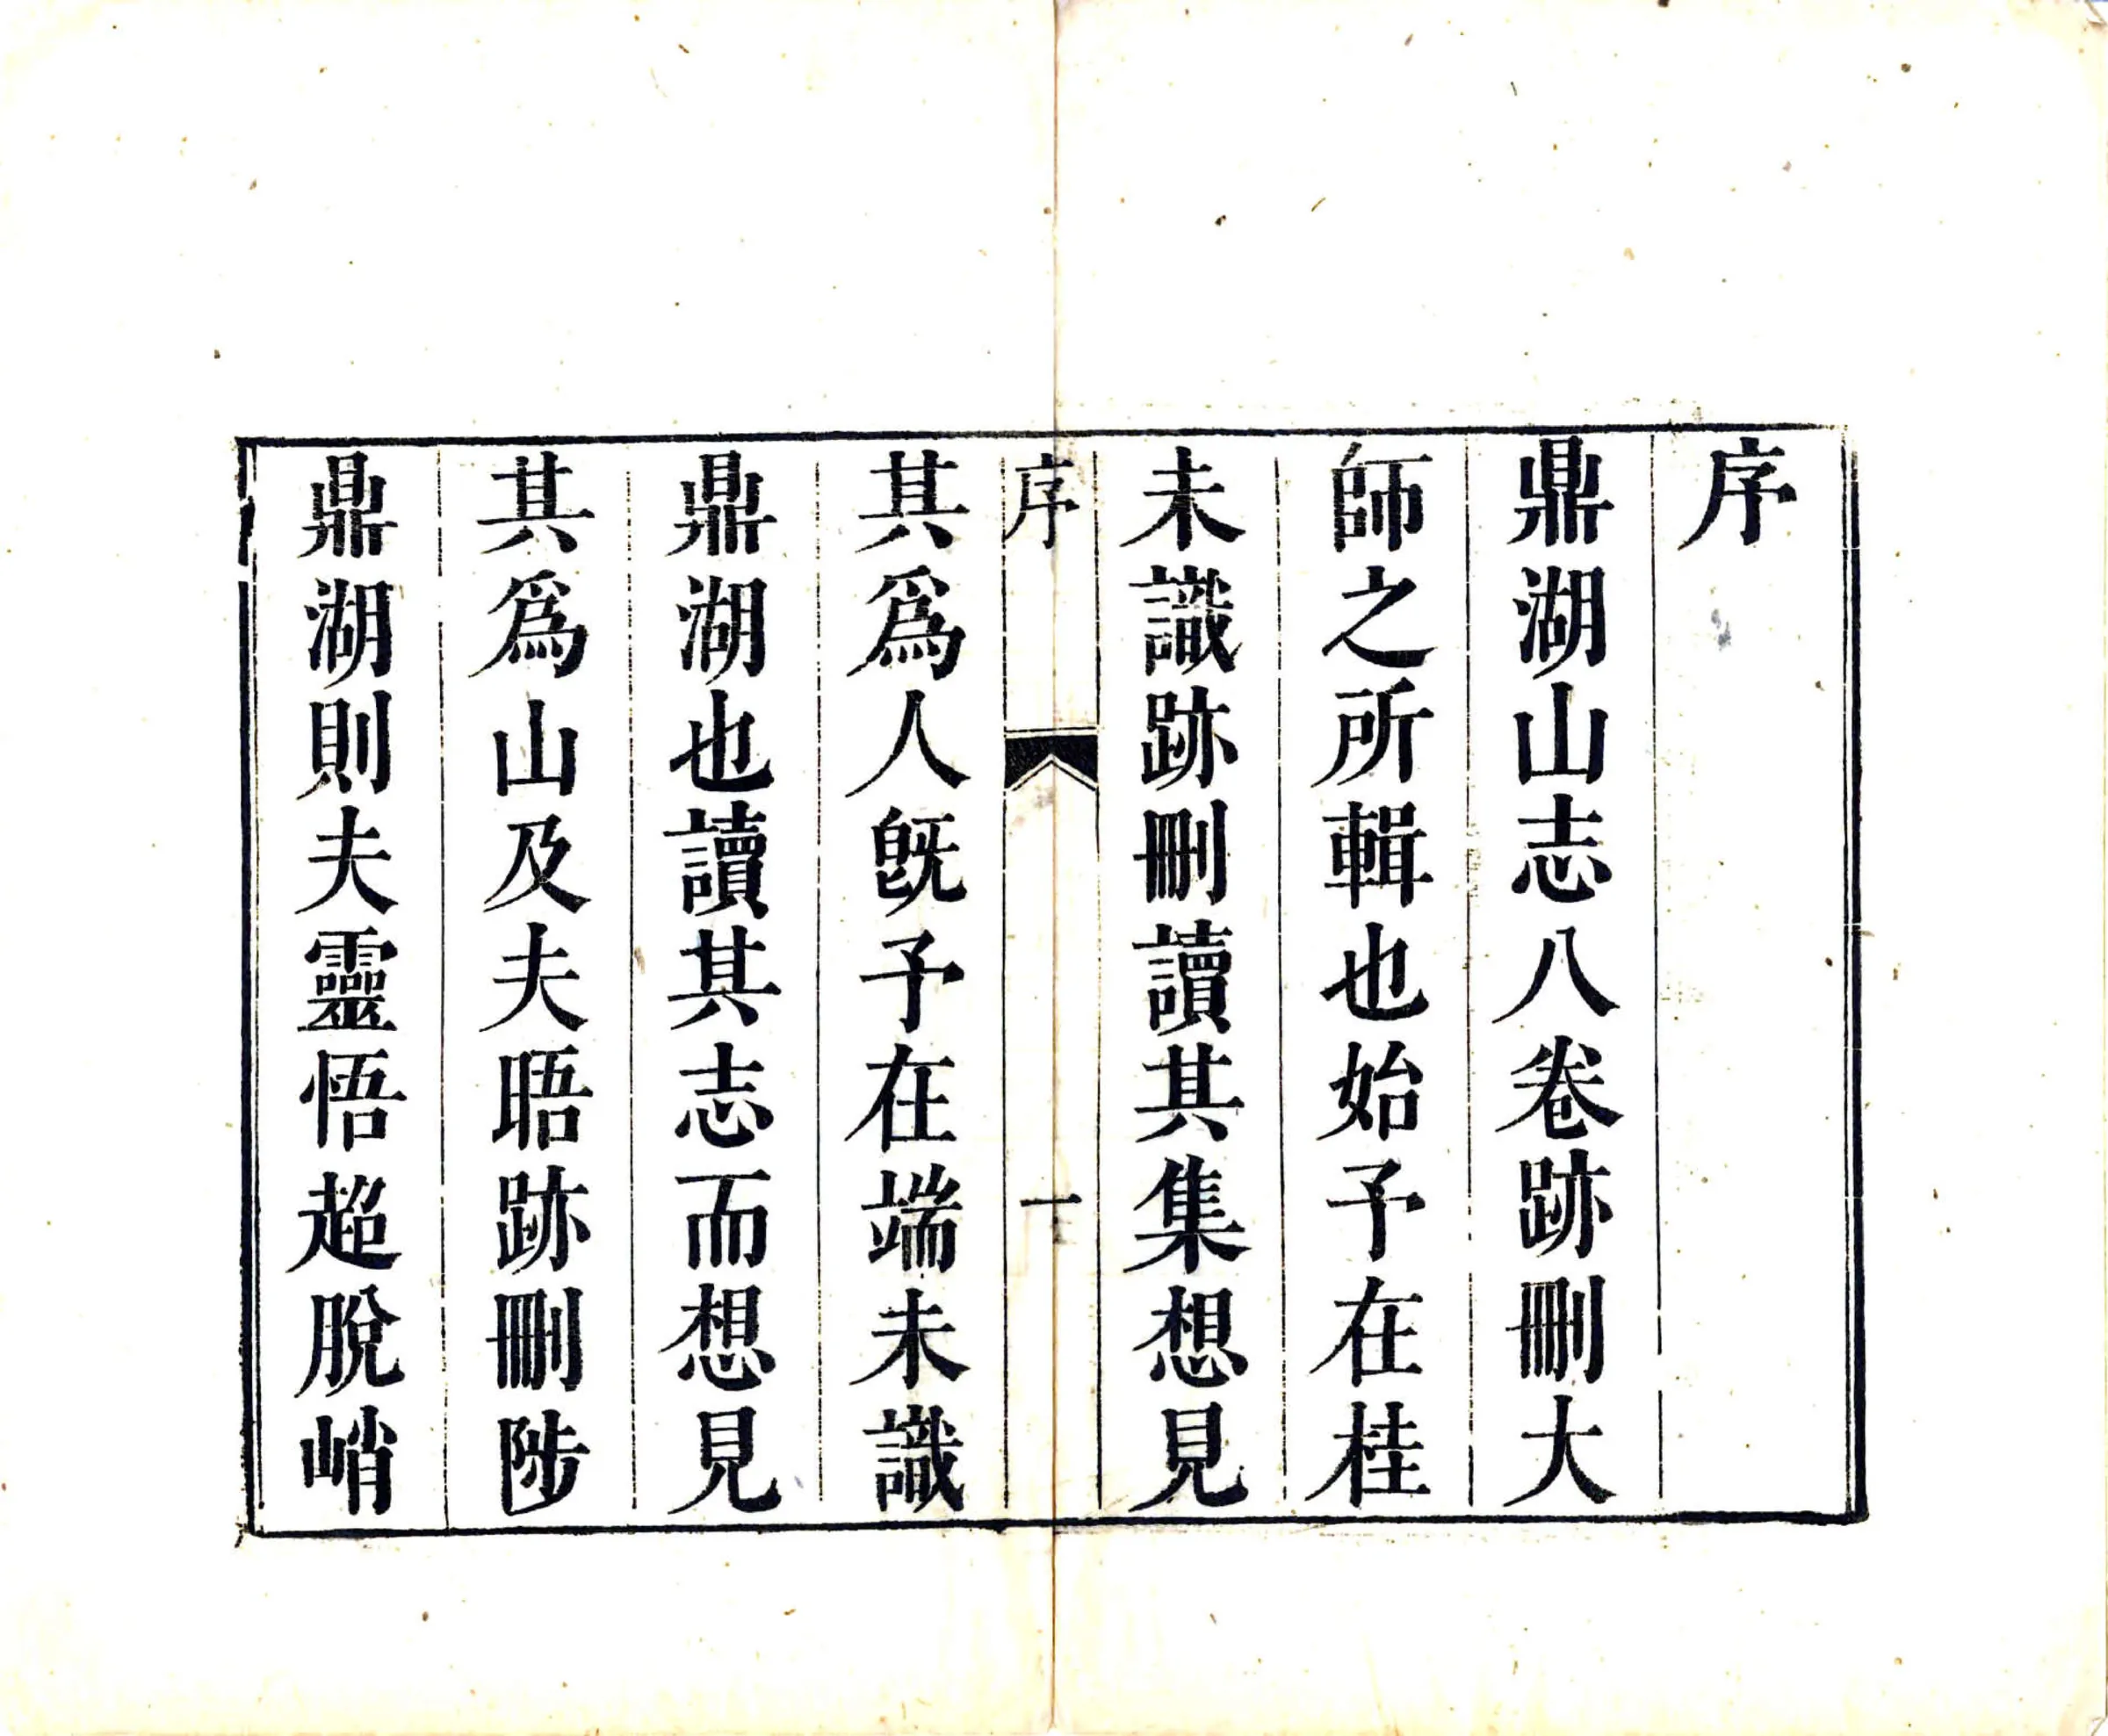 序
鼎湖山志八卷跡刪大
師之所輯也始予在桂
未識跡刪讀其集想見
序 一
其爲人旣予在端未識
鼎湖也讀其志而想見
其爲山及夫晤跡刪陟
鼎湖則夫靈悟超脫峭